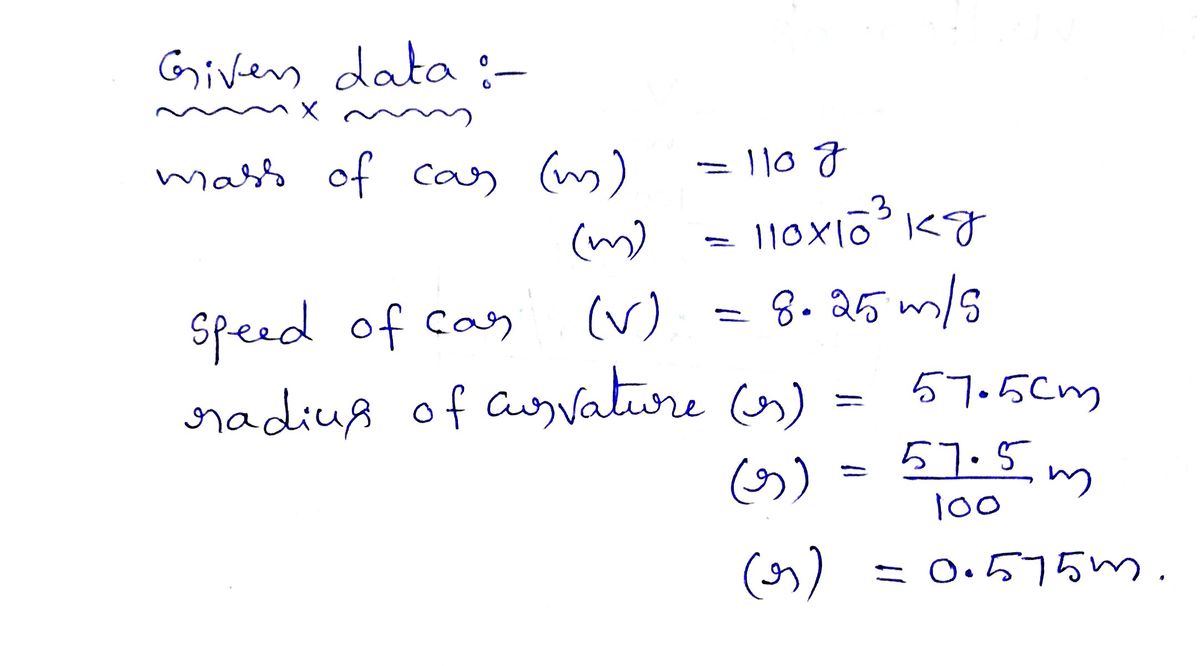 Given data :-
x
mass of car (m) = 110 g
(m) = 110x10⁻³ kg
speed of car (v) = 8.25 m/s
radius of curvature (r) = 57.5cm
(r) = 57.5/100 m
(r) = 0.575m.